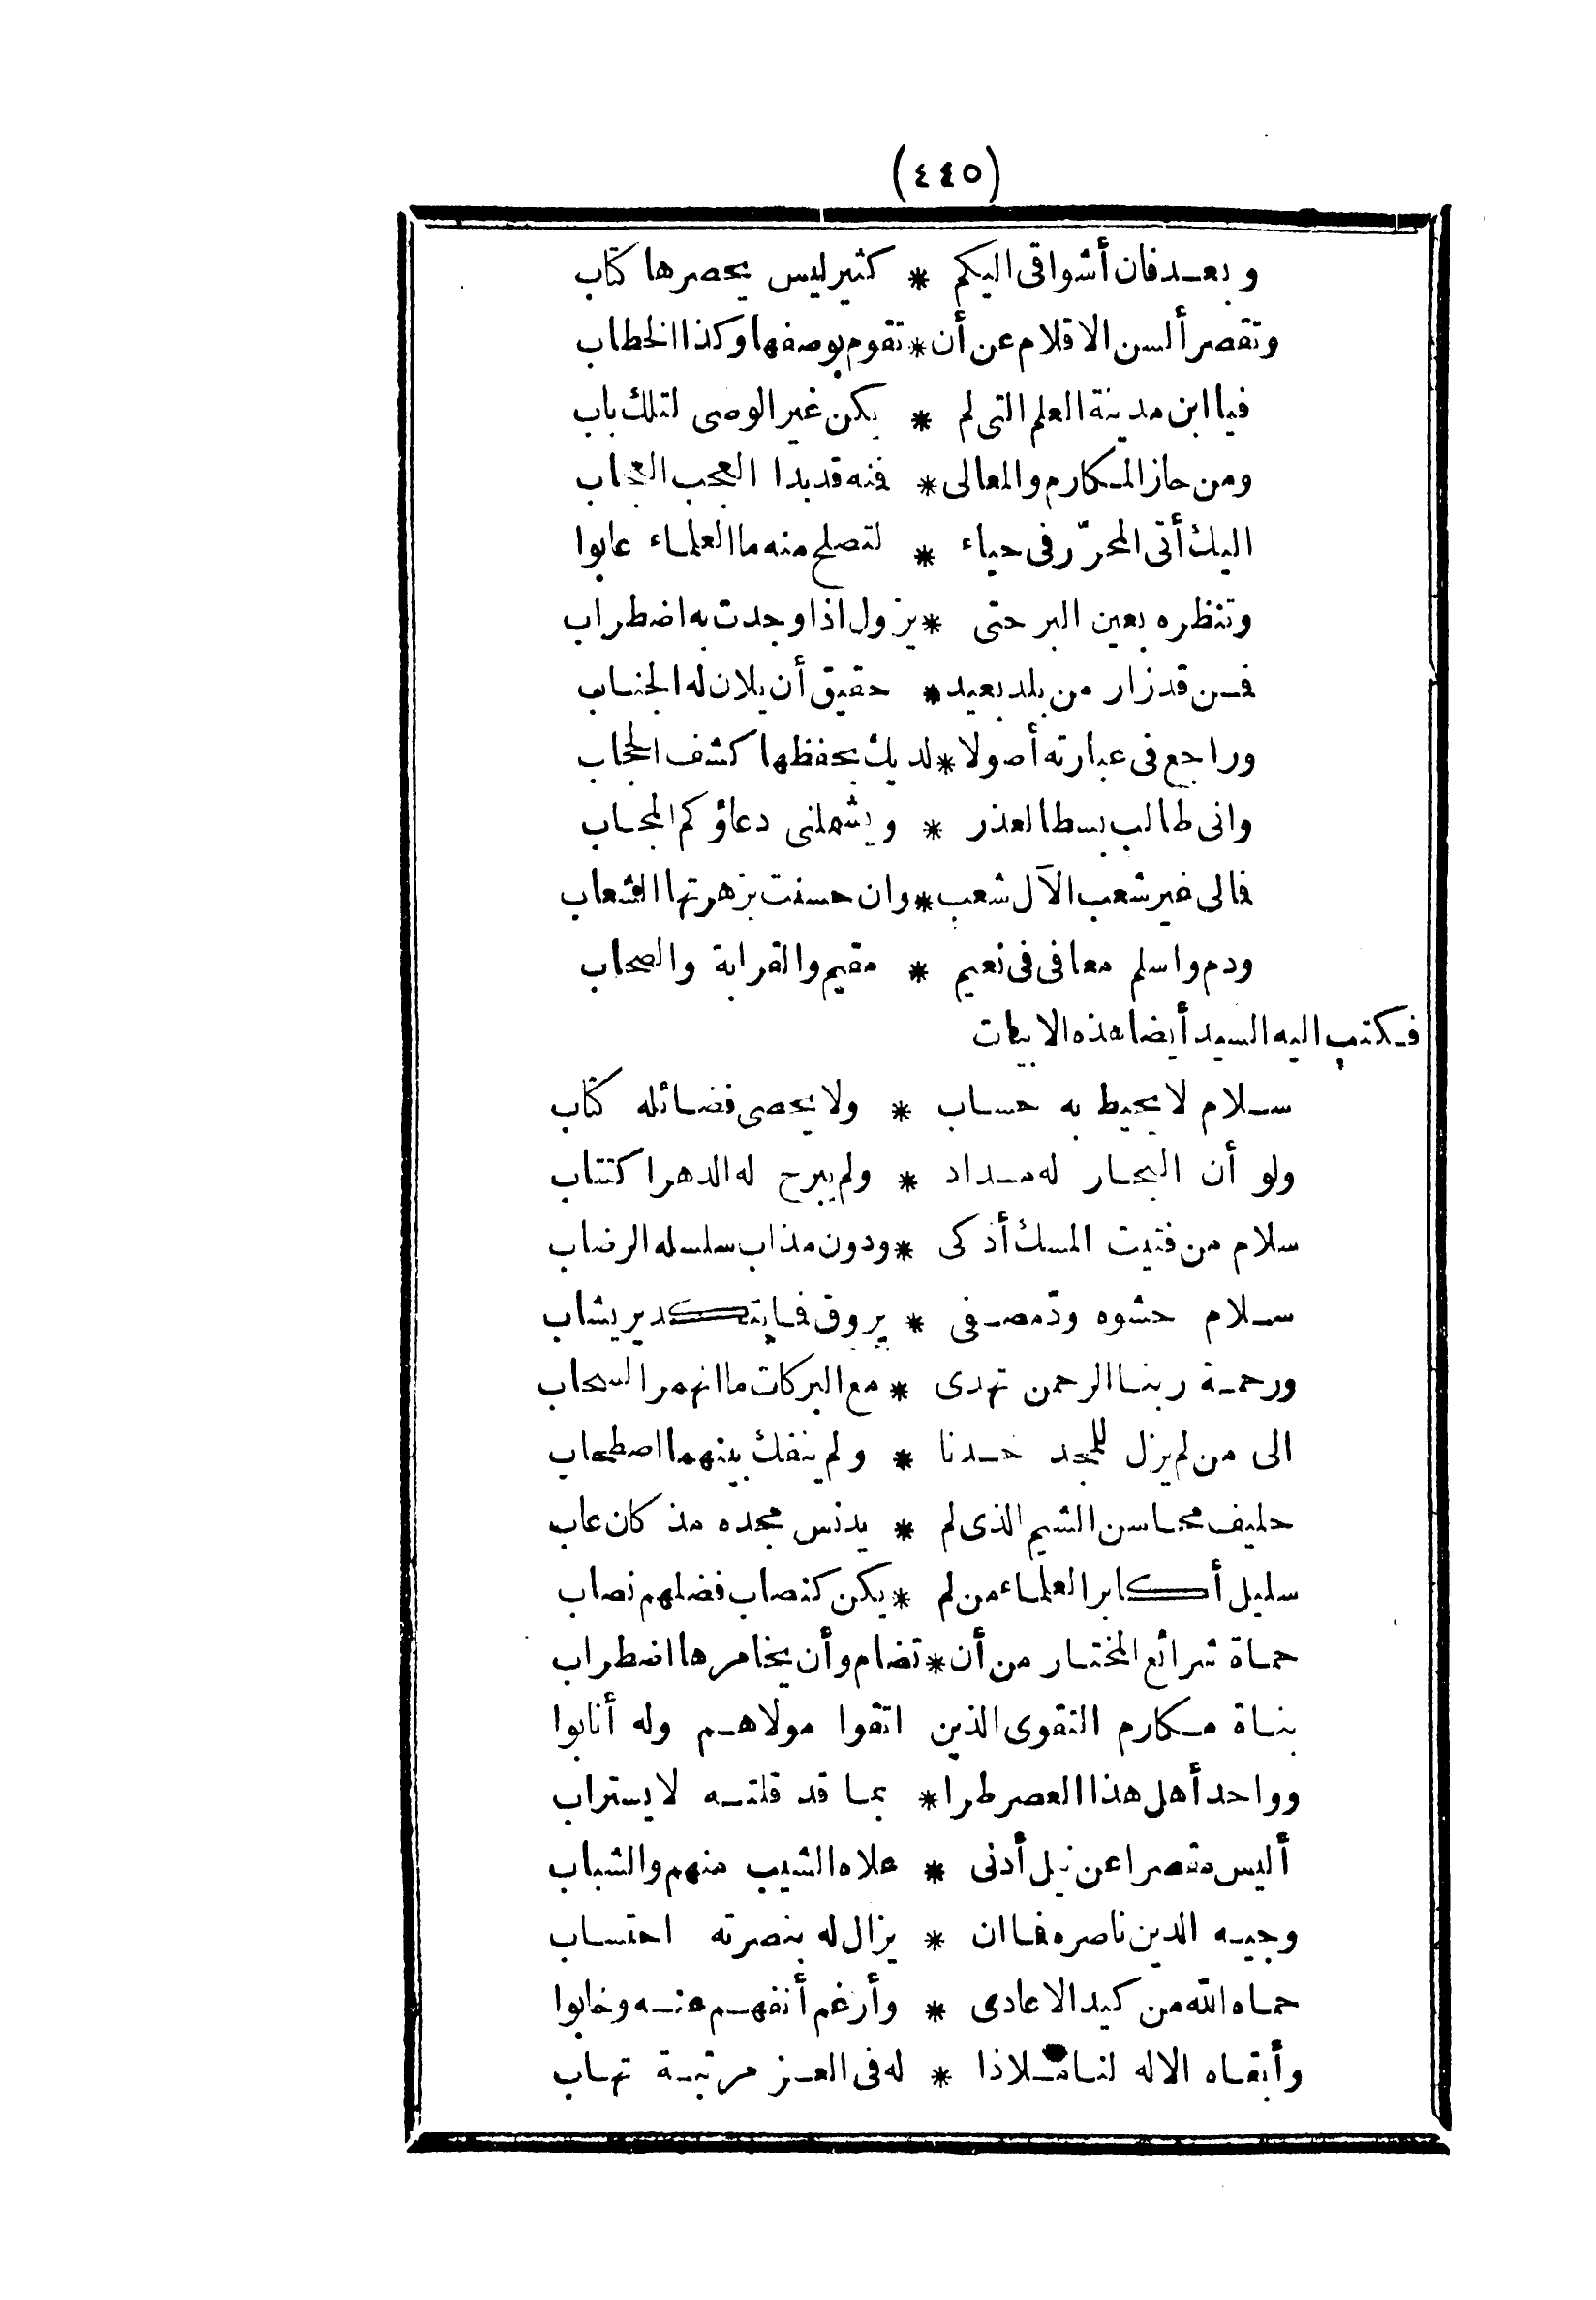 (٤٤٥)
وبعد فان أشواقى اليكم * كثير ليس يحصرها كتاب
وتقصر ألسن الاقلام عن أن * تقوم بوصفها وكذا الخطاب
فيا ابن مدينة العلم التى لم * يكن غير الوصى لتلك باب
ومن حاز المكارم والمعالى * فمنه قد بدا العجب العجاب
اليك أتى المحرّر فى حياء * لتصلح منه ما العلماء عابوا
وتنظره بعين البر حتى * يزول اذا وجدت به اضطراب
فمن قد زار من بلد بعيد * حقيق أن يلان له الجناب
وراجع فى عبارته أصولا * لديك بحفظها كشف الحجاب
وانى طالب بسطا لعذر * ويشملنى دعاؤكم المجاب
فالى غير شعب الآل شعب * وان حسنت بزهرتها الشعاب
ودم واسلم معافى فى نعيم * مقيم والقرابة والصحاب
فكتب اليه السيد أيضا هذه الابيات
سلام لا يحيط به حساب * ولا يحصى فضائله كتاب
ولو أن البحار له مداد * ولم يبرح له الدهر اكتتاب
سلام من فتيت المسك أذكى * ودون مذاب سلسله الرضاب
سلام حشوه ودّ مصفى * يروق فما بتكدير يشاب
ورحمة ربنا الرحمن تهدى * مع البركات ما انهمر السحاب
الى من لم يزل للمجد خدنا * ولم ينفك بينهما اصطحاب
حليف محاسن الشيم الذى لم * يدنس مجده مذ كان عاب
سليل أكابر العلماء من لم * يكن كنصاب فضلهم نصاب
حماة شرائع المختار من أن * تضام وأن يخامرها اضطراب
بناة مكارم التقوى الذين اتقوا مولاهم وله أنابوا
وواحد أهل هذا العصر طرا * بما قد قلته لا يستراب
أليس مقصرا عن نيل أدنى * علاه الشيب منهم والشباب
وجيه الدين ناصره فما ان * يزال له بنصرته احتساب
حماه الله من كيد الاعادى * وأرغم أنفهم عنه وخابوا
وأبقاه الاله لنا ملاذا * له فى العز مرتبة تهاب